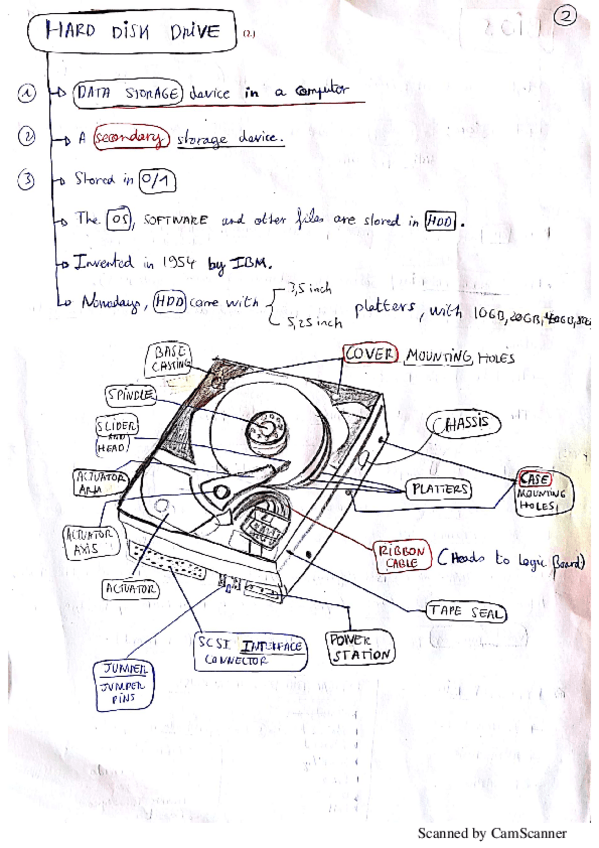 2
HARD DISK DRIVE (2)
1 DATA STORAGE device in a computer
2 A secondary storage device.
3 Stored in 0/1
The OS, SOFTWARE and other files are stored in HDD.
Invented in 1954 by IBM.
Nowadays, HDD come with 3,5 inch
5,25 inch
platters, with 10GB, 20GB, 40GB,
BASE CASTING
COVER MOUNTING HOLES
SPINDLE
SLIDER
AND
HEAD
CHASSIS
ACTUATOR
ARM
PLATTERS
CASE
MOUNTING
HOLES
ACTUATOR
AXIS
RIBBON
CABLE (Heads to Logic Board)
ACTUATOR
TAPE SEAL
SCSI INTERFACE
CONNECTOR
POWER
STATION
JUMPER
JUMPER
PINS
Scanned by CamScanner